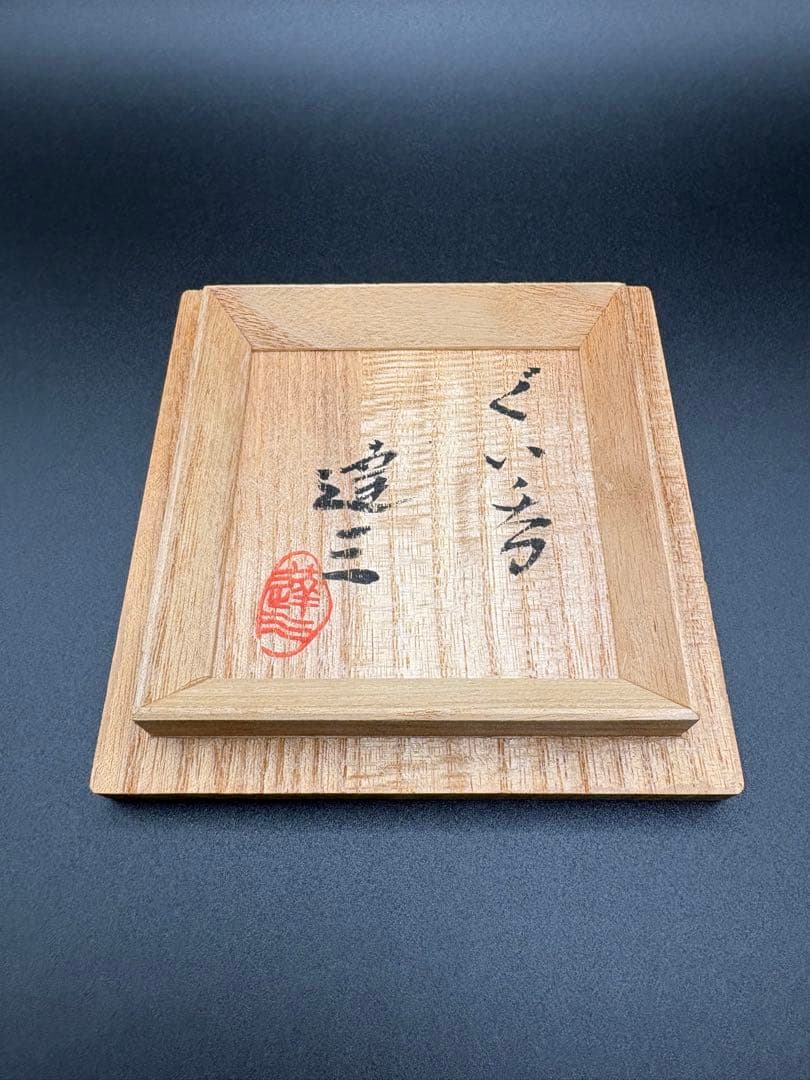 ぐい呑
達三